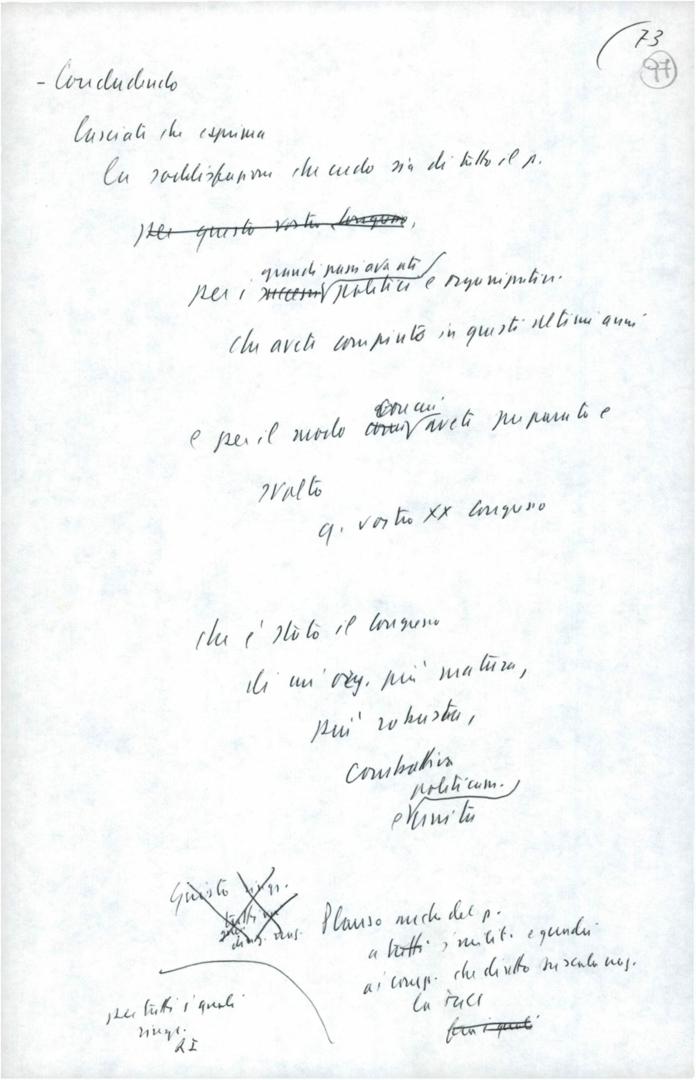 73
97
- Concludendo
lasciate che esprima
la soddisfazione che credo sia di tutto il p.
per questo vostro congresso,
grandi passi avanti
per i successi politici e organizzativi
che avete compiuto in questi ultimi anni
con cui
e per il modo come avete preparato e
svolto
q. vostro XX congresso
che è stato il congresso
di un' org. più matura,
più robusta,
combattiva
politicam.
e unita
Questo ringr.
tutti
Plauso anche del p.
a tutti i milit. e quadri
ai comp. che diretto su scala naz.
la FGCI
fra i quali
per tutti i quali
ringr.